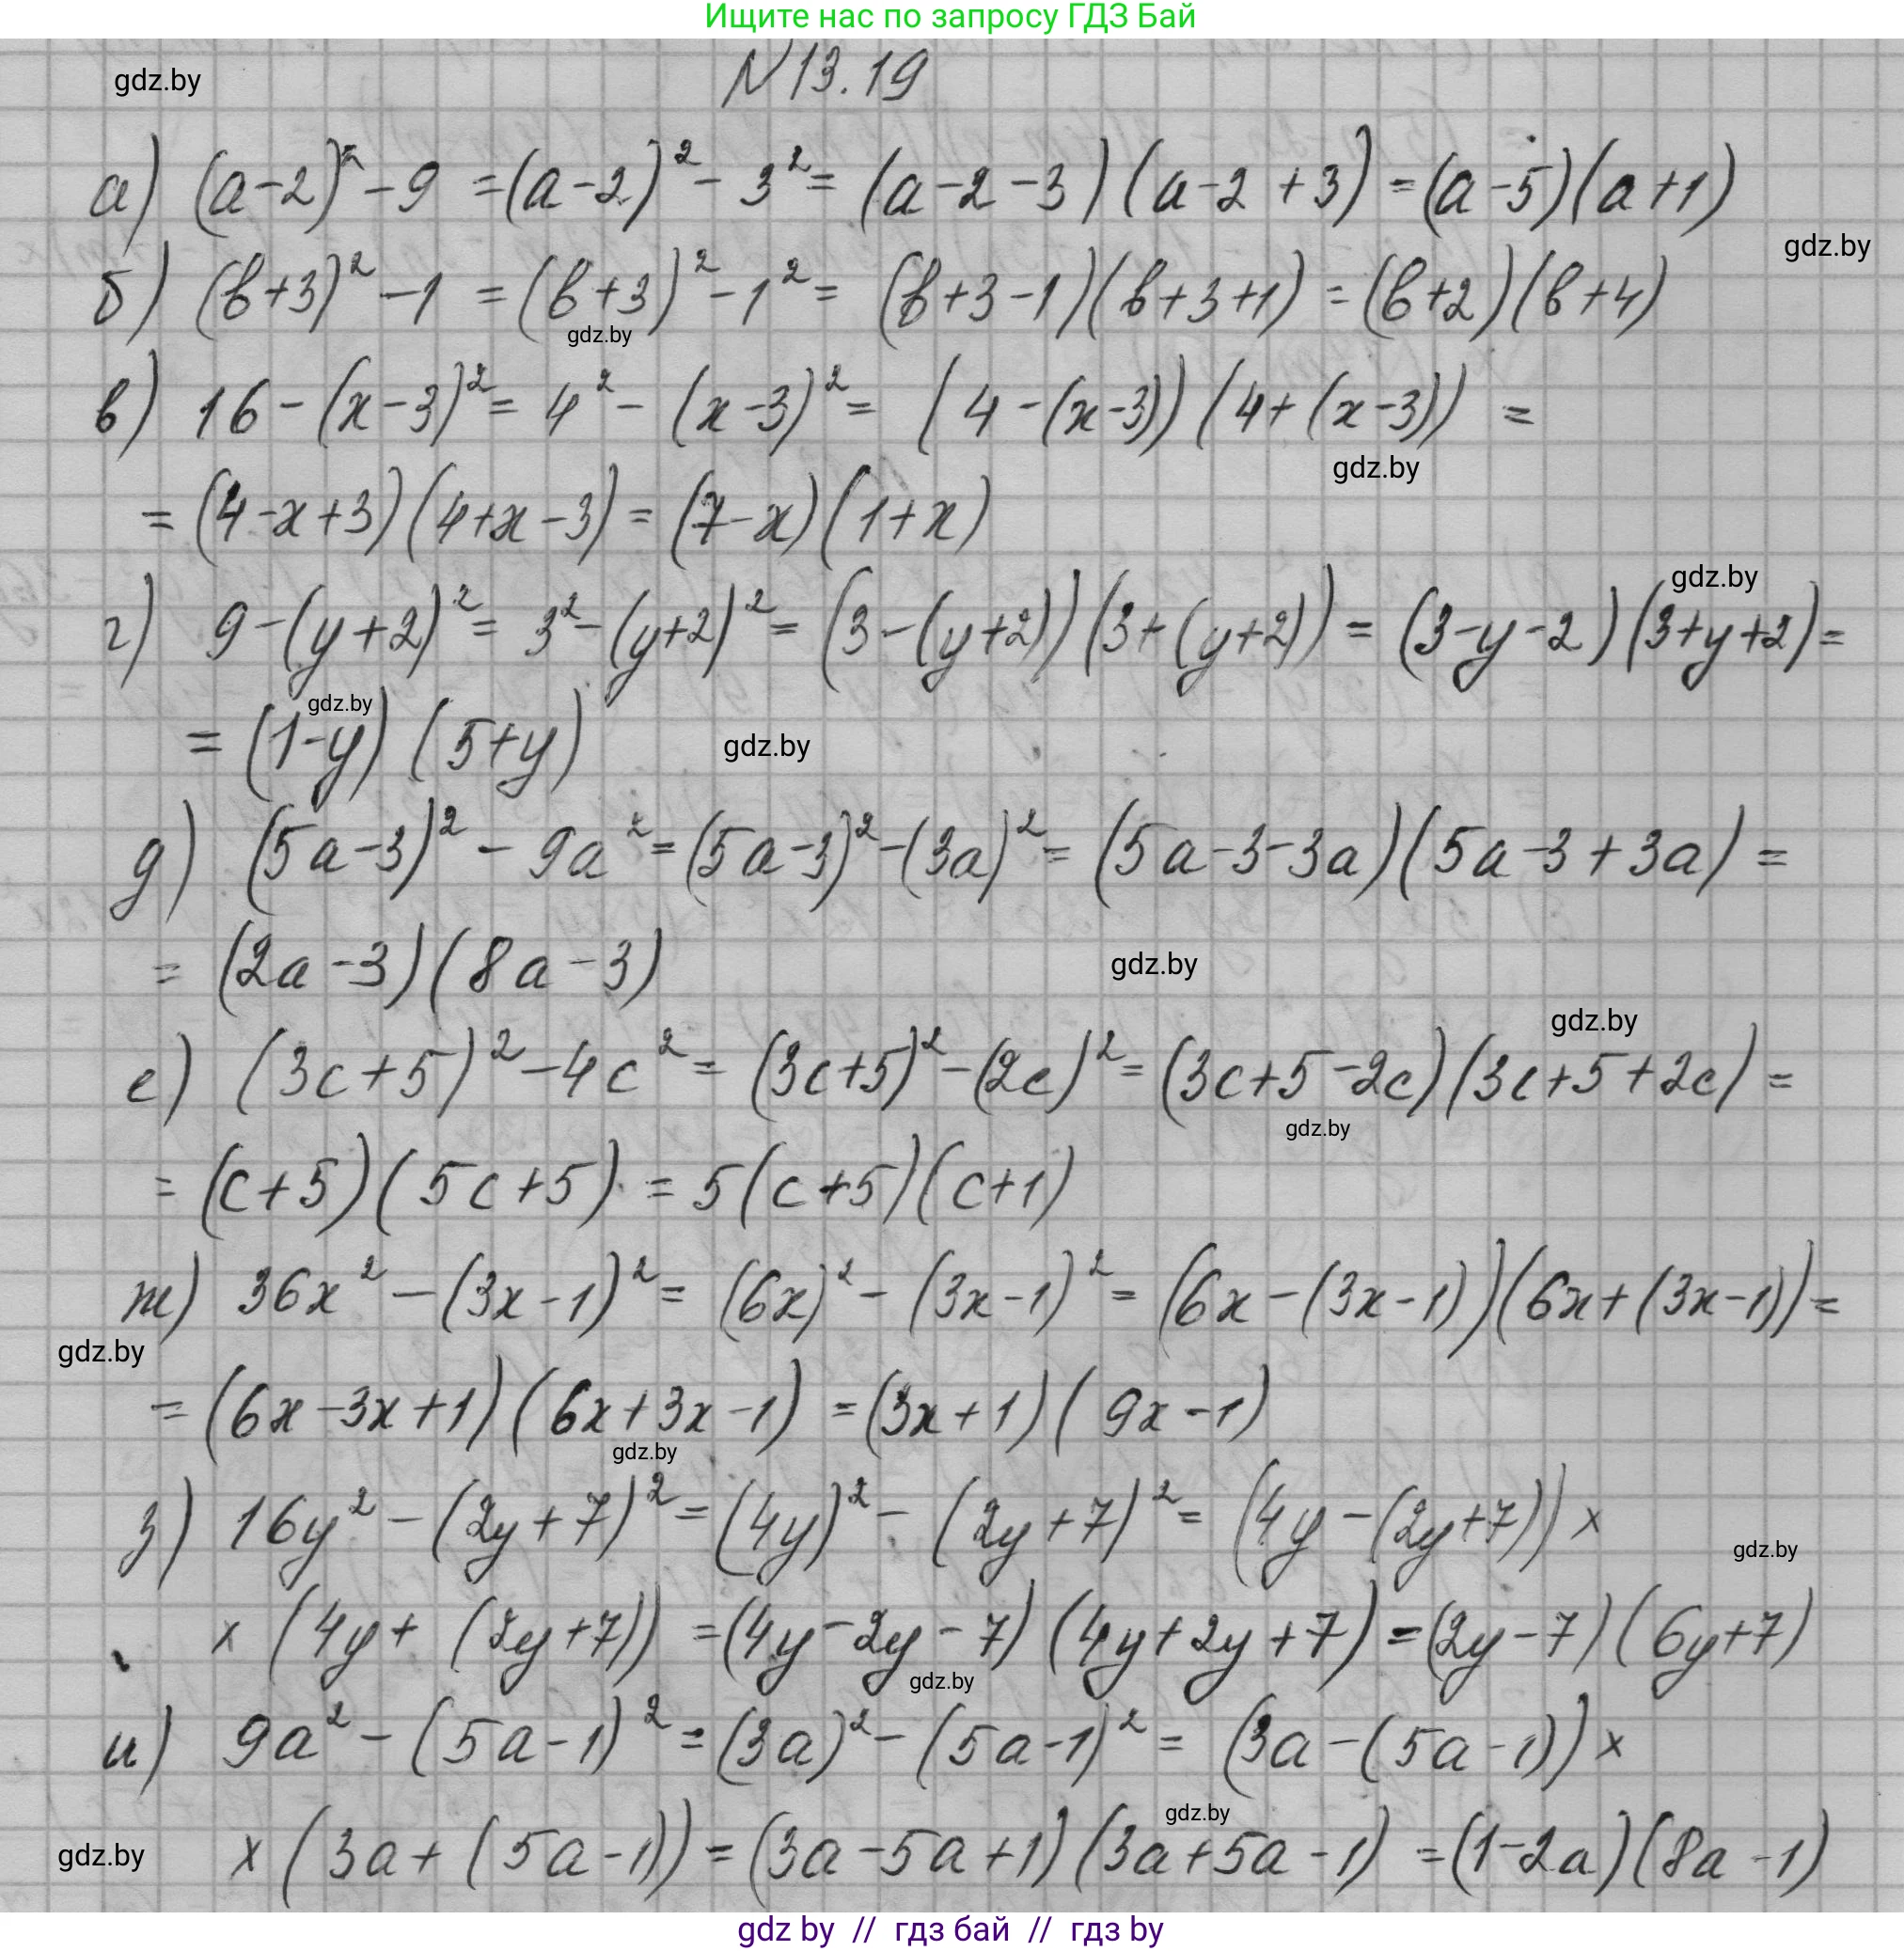 Ищите нас по запросу ГДЗ Бай
N 13.19
gdz.by
а) (a-2)² - 9 = (a-2)² - 3² = (a-2-3)(a-2+3) = (a-5)(a+1)
gdz.by
б) (в+3)² - 1 = (в+3)² - 1² = (в+3-1)(в+3+1) = (в+2)(в+4)
gdz.by
в) 16 - (x-3)² = 4² - (x-3)² = (4-(x-3))(4+(x-3)) =
gdz.by
= (4-x+3)(4+x-3) = (7-x)(1+x)
gdz.by
г) 9 - (y+2)² = 3² - (y+2)² = (3-(y+2))(3+(y+2)) = (3-y-2)(3+y+2) =
gdz.by
= (1-y)(5+y)
gdz.by
д) (5a-3)² - 9a² = (5a-3)² - (3a)² = (5a-3-3a)(5a-3+3a) =
= (2a-3)(8a-3)
gdz.by
gdz.by
е) (3c+5)² - 4c² = (3c+5)² - (2c)² = (3c+5-2c)(3c+5+2c) =
gdz.by
= (c+5)(5c+5) = 5(c+5)(c+1)
ж) 36x² - (3x-1)² = (6x)² - (3x-1)² = (6x-(3x-1))(6x+(3x-1)) =
gdz.by
= (6x-3x+1)(6x+3x-1) = (3x+1)(9x-1)
gdz.by
з) 16y² - (2y+7)² = (4y)² - (2y+7)² = (4y-(2y+7)) ×
gdz.by
× (4y+(2y+7)) = (4y-2y-7)(4y+2y+7) = (2y-7)(6y+7)
gdz.by
и) 9a² - (5a-1)² = (3a)² - (5a-1)² = (3a-(5a-1)) ×
gdz.by
× (3a+(5a-1)) = (3a-5a+1)(3a+5a-1) = (1-2a)(8a-1)
gdz.by
gdz by // гдз бай // гдз by